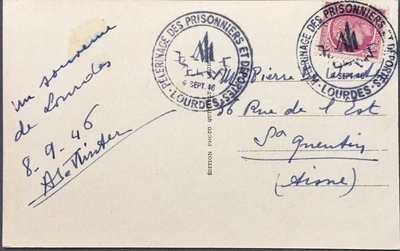 un souvenir
de Lourdes
8-9-46
PÈLERINAGE DES PRISONNIERS ET DÉPORTÉS
SEPT. 46
LOURDES
PÈLERINAGE DES PRISONNIERS ET DÉPORTÉS
SEPT. 46
LOURDES
ÉDITION PHOTO
Pierre
36 Rue de l'Est
St Quentin
(Aisne)